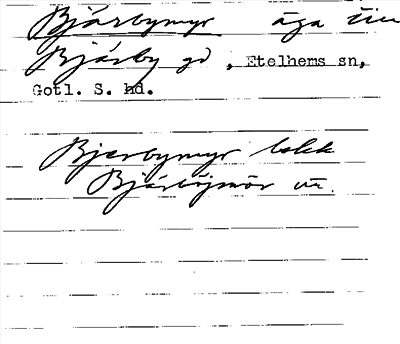 Bjärbymyr äga till
Bjärby gd, Etelhems sn,
Gotl. S. hd.
Bjærbymyr bskk
Bjärböjmör